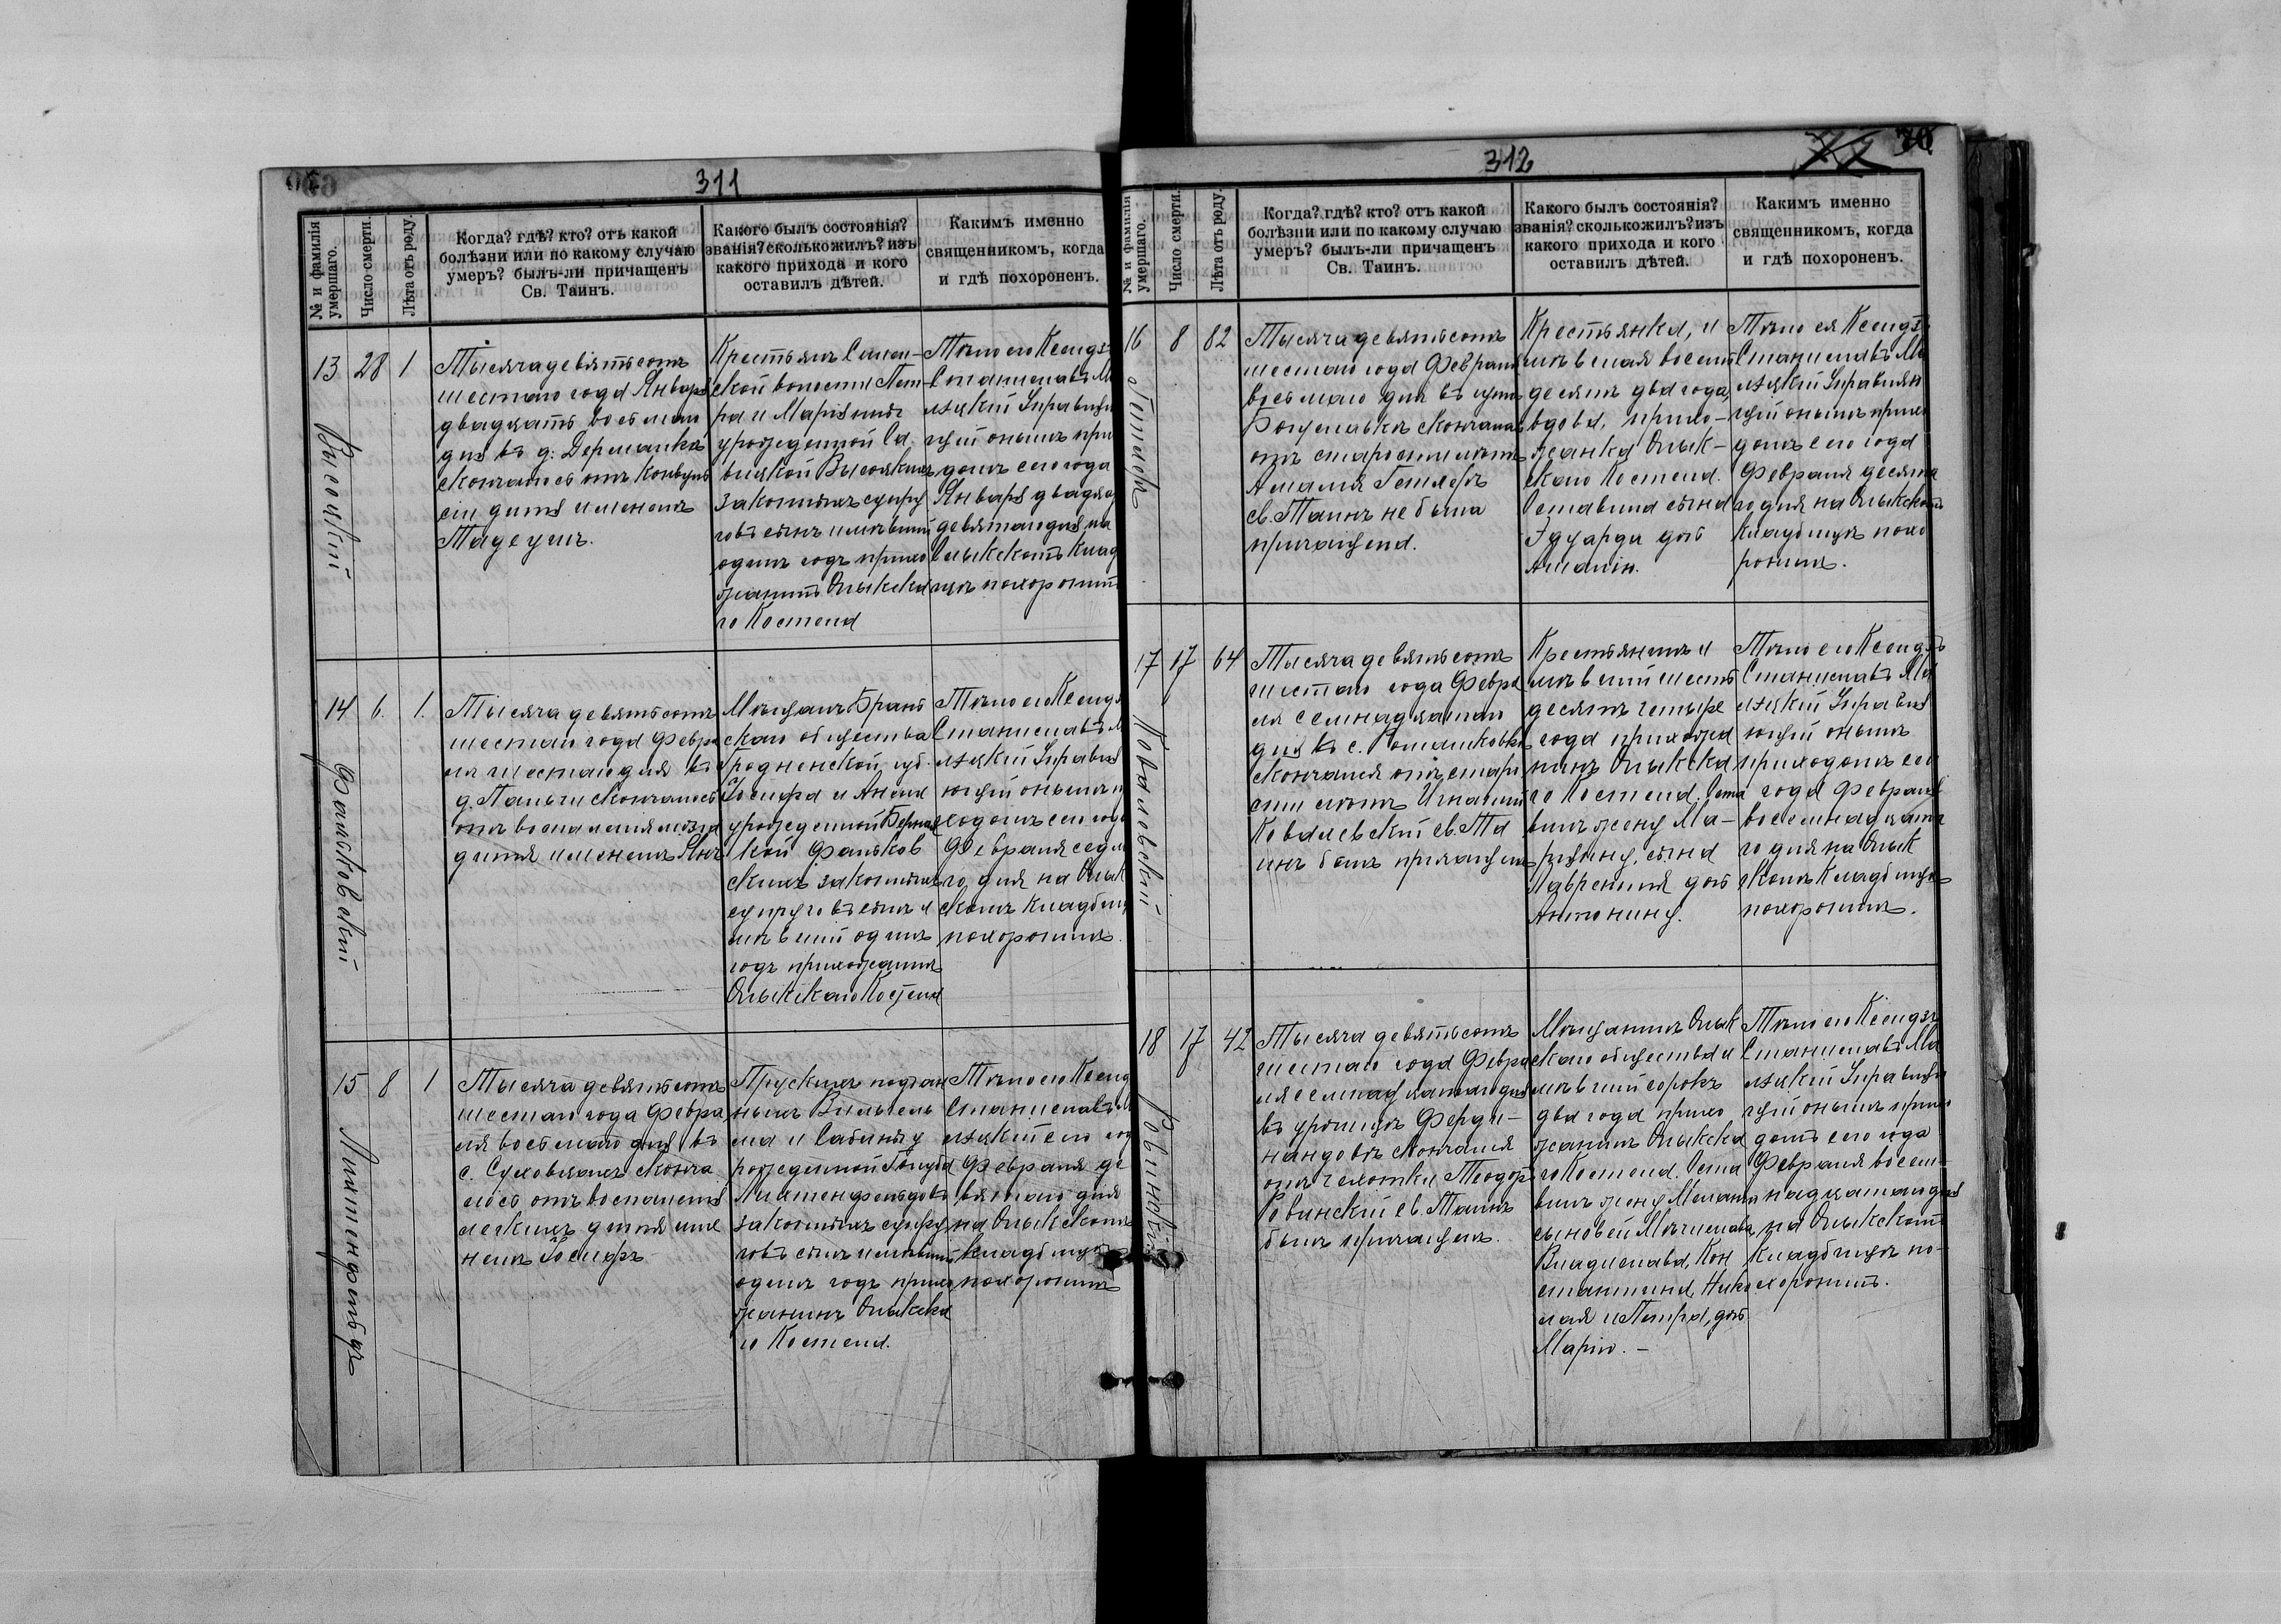 311
№ и фамилія умершаго.
Число смерти.
Лѣта отъ роду.
Когда? гдѣ? кто? отъ какой
болѣзни или по какому случаю
умеръ? былъ-ли причащенъ
Св. Таинъ.
Какого былъ состоянія?
званія? сколько жилъ? изъ
какого прихода и кого
оставилъ дѣтей.
Какимъ именно
священникомъ, когда
и гдѣ похороненъ.
13
28
1
Высоцкій
Тысяча девятьсотъ
шестаго года Января
двадцать восьмаго
дня въ д. Дерманка
скончалось отъ конвуль
сіи дитя именемъ
Тадеушъ.
Крестьянъ
ской волости Пет-
ра и Маріянны
урожденной Са
вицкой Высоцкихъ
законныхъ супру
говъ сынъ имѣвшій
одинъ годъ прихо
жанинъ Олыкска
го Костела
Тѣло его Ксендзъ
Станиславъ М
цкій Управля
щій онымъ при
домъ сего года
Января двадца
девятаго дня на
Олыкскомъ клад
щѣ похоронилъ
14
6.
1.
Фальковскій
Тысяча девятьсотъ
шестаго года Февра
ля шестаго дня въ
д. Пальчи скончалось
отъ воспаленія мозга
дитя именемъ Янъ
Мѣщанъ Бранс
скаго общества
Гродненской губ.
Іосифа и Анели
урожденной
кой Фальков
скихъ законныхъ
супруговъ сынъ и
мѣвшій одинъ
годъ прихожанинъ
Олыкскаго Костела
Тѣло его Ксендз
Станиславъ М
цкій Управля
ющій онымъ п
ходомъ сего года
Февраля седьм
го дня на Олык
скомъ кладбищ
похоронилъ.
15
8
1
Лихтенфельдъ
Тысяча девятьсотъ
шестаго года Февра
ля восьмаго дня въ
с. Суховцахъ сконча
лось отъ воспаленія
легкихъ дитя име
немъ Іосифъ
Прускихъ поддан
ныхъ Вильгель
ма и Сабины у
рожденной Голуба
Лихтенфельдовъ
законныхъ супру
говъ сынъ имѣвшій
одинъ годъ прихо
жанинъ Олыкска
го Костела.
Тѣло его Ксенд
Станиславъ М
цкій сего год
Февраля де
вятаго дня
на Олыкскомъ
кладбищѣ
похоронилъ
312
70
№ и фамилія умершаго.
Число смерти.
Лѣта отъ роду.
Когда? гдѣ? кто? отъ какой
болѣзни или по какому случаю
умеръ? былъ-ли причащенъ
Св. Таинъ.
Какого былъ состоянія?
званія? сколько жилъ? изъ
какого прихода и кого
оставилъ дѣтей.
Какимъ именно
священникомъ, когда
и гдѣ похороненъ.
16
8
82
Тысяча девятьсотъ
шестаго года Февраля
восьмаго дня въ
скончалась
отъ старости лѣтъ
Амалія
св. Таинъ не была
причащена.
Крестьянка, и
мѣвшая восемь
десятъ два года,
вдова, прихо-
жанка Олык-
скаго Костела.
Оставила сына
Эдуарда дочь
Амалію.
Тѣло ея Ксендзъ
Станиславъ М
цкій Управляю
щій онымъ прихо
домъ сего года
Февраля десята
го дня на Олыкскомъ
кладбищѣ похо
ронилъ.
17
17
64
Ковалевскій
Тысяча девятьсотъ
шестаго года Февра
ля семнадцатаго
дня въ с. Ромашковкѣ
скончался отъ старо
сти лѣтъ Игнатій
Ковалевскій св. Та
инъ былъ причащенъ
Крестьянинъ и
мѣвшій шесть
десятъ четыре
года прихожа
нинъ Олыкска
го Костела. Оста
вилъ жену Ма-
ріянну, сына
Лаврентія дочь
Антонину.
Тѣло его Ксендзъ
Станиславъ М
цкій Управля
ющій онымъ
приходомъ сего
года Февраля
восемнадцата
го дня на Олык
скомъ кладбищѣ
похоронилъ.
18
17
42
Ровинскій
Тысяча девятьсотъ
шестаго года Февра
ля семнадцатаго дня
въ урочищѣ Ферди-
нандовѣ скончался
отъ чахотки Теодоръ
Ровинскій св. Таинъ
былъ причащенъ.
Мѣщанинъ Олык
скаго общества и
мѣвшій сорокъ
два года прихо
жанинъ Олыкска
го Костела. Оста
вилъ жену Меланію
сыновей Мечислава,
Владислава, Кон
стантина, Нико
лая и Петра, дочь
Марію. –
Тѣло его Ксендзъ
Станиславъ М
цкій Управляю
щій онымъ прихо
домъ сего года
Февраля восем-
надцатаго дня
на Олыкскомъ
кладбищѣ по-
хоронилъ.